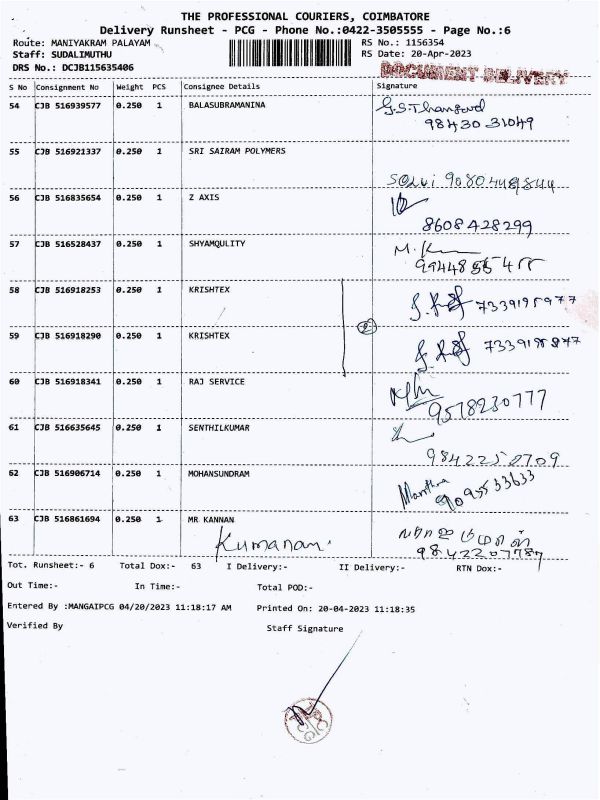 THE PROFESSIONAL COURIERS, COIMBATORE
Delivery Runsheet - PCG - Phone No.:0422-3505555 - Page No.:6
Route: MANIYAKRAM PALAYAM RS No.: 1156354
Staff: SUDALIMUTHU RS Date: 20-Apr-2023
DRS No.: DCJB115635406 DOCUMENT DELIVERY
S No Consignment No Weight PCS Consignee Details Signature
54 CJB 516939577 0.250 1 BALASUBRAMANINA
98430 31049
55 CJB 516921337 0.250 1 SRI SAIRAM POLYMERS
Selvi
56 CJB 516835654 0.250 1 Z AXIS
8608428299
57 CJB 516528437 0.250 1 SHYAMQULITY
58 CJB 516918253 0.250 1 KRISHTEX
7339195977
59 CJB 516918290 0.250 1 KRISHTEX
60 CJB 516918341 0.250 1 RAJ SERVICE
9578230777
61 CJB 516635645 0.250 1 SENTHILKUMAR
62 CJB 516906714 0.250 1 MOHANSUNDRAM
63 CJB 516861694 0.250 1 MR KANNAN
Kumanan.
Tot. Runsheet:- 6 Total Dox:- 63 I Delivery:- II Delivery:- RTN Dox:-
Out Time:- In Time:- Total POD:-
Entered By :MANGAIPCG 04/20/2023 11:18:17 AM Printed On: 20-04-2023 11:18:35
Verified By Staff Signature